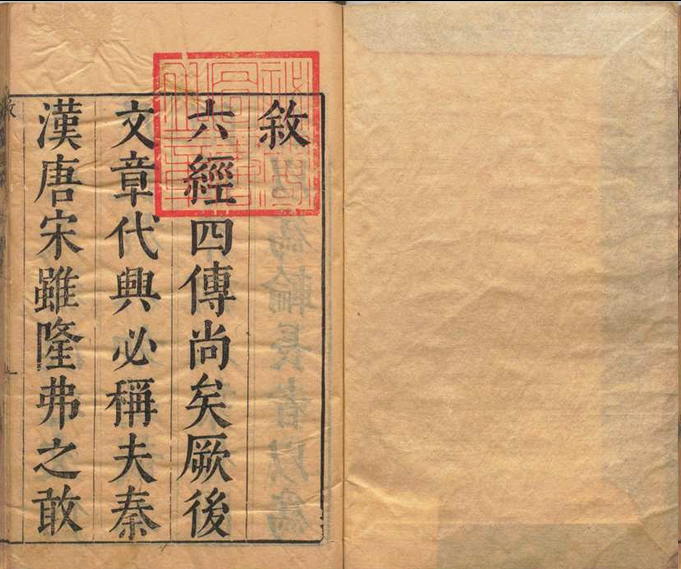 敘
六經四傳尚矣厥後
文章代興必稱夫秦
漢唐宋雖隆弗之敢